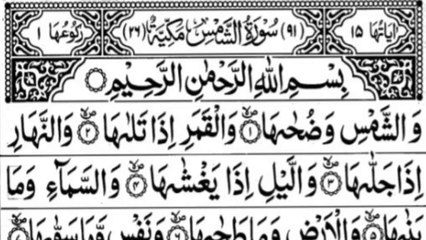 اٰیَاتُهَا ۱۵ (۹۱) سُوْرَةُ الشَّمْسِ مَكِّيَّةٌ (۲۶) رُكُوْعُهَا ۱
بِسْمِ اللّٰهِ الرَّحْمٰنِ الرَّحِیْمِ
وَ الشَّمْسِ وَ ضُحٰىهَا ۱ وَ الْقَمَرِ اِذَا تَلٰىهَا ۲ وَ النَّهَارِ
اِذَا جَلّٰىهَا ۳ وَ الَّیْلِ اِذَا یَغْشٰىهَا ۴ وَ السَّمَآءِ وَ مَا
بَنٰىهَا ۵ وَ الْاَرْضِ وَ مَا طَحٰىهَا ۶ وَ نَفْسٍ وَّ مَا سَوّٰىهَا ۷